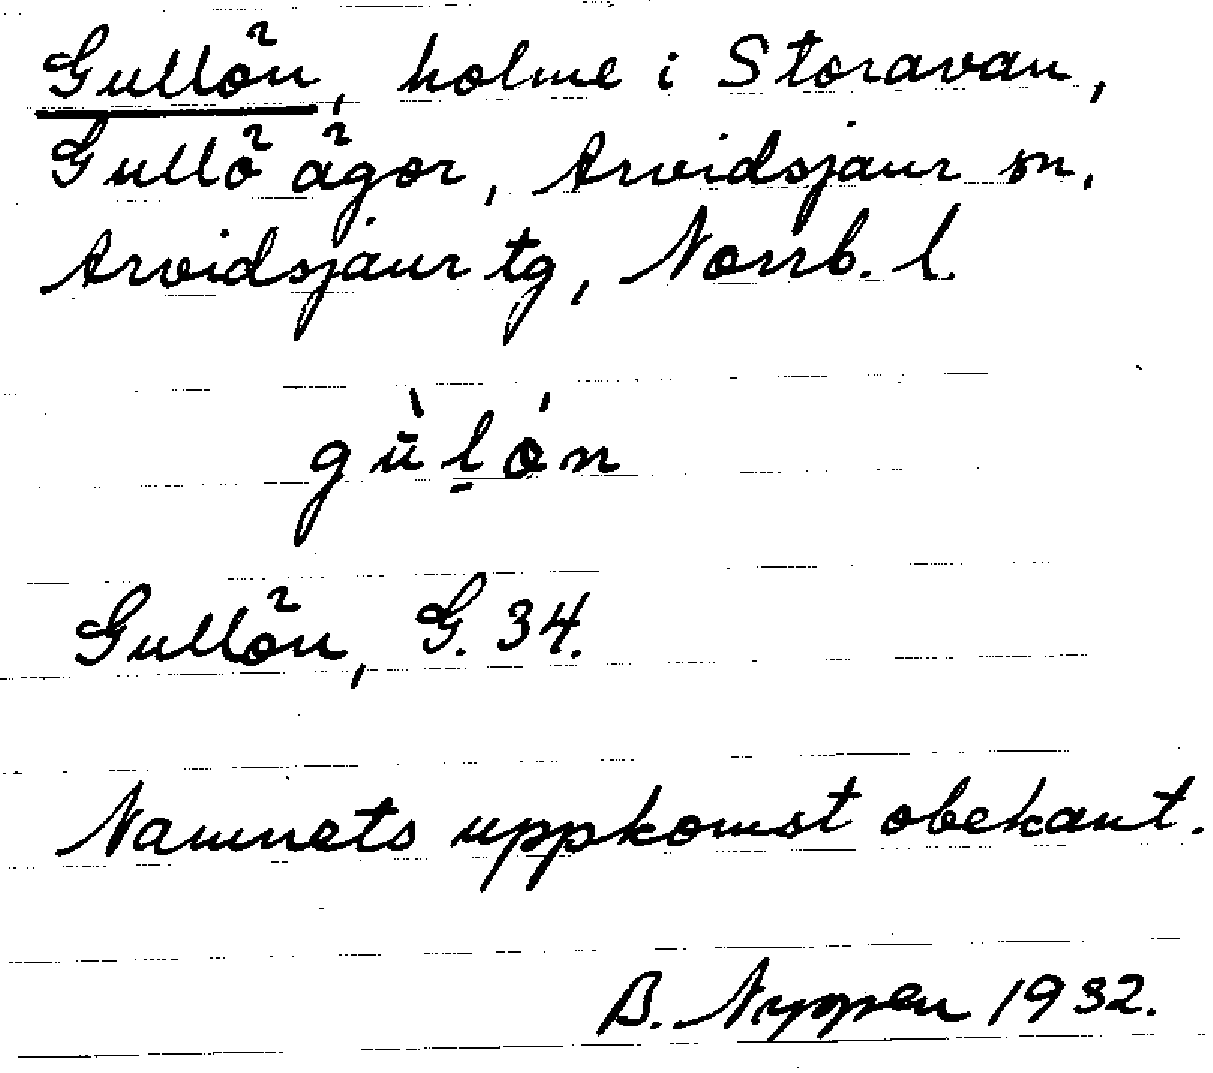 Gullön, holme i Storavan,
Gullö ägor, Arvidsjaur sn,
Arvidsjaur tg, Norrb. l.
Gullön, G. 34.
Namnets uppkomst obekant.
B. Nyppen 1932.